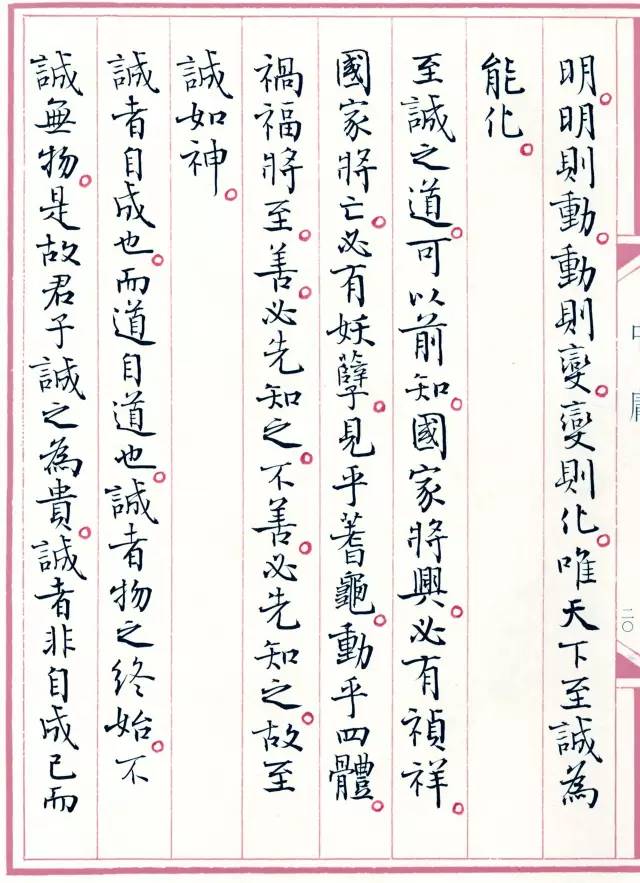 明。明則動。動則變。變則化。唯天下至誠為
能化。
至誠之道。可以前知。國家將興。必有禎祥。
國家將亡。必有妖孽。見乎蓍龜。動乎四體。
禍福將至。善。必先知之。不善。必先知之。故至
誠如神。
誠者自成也。而道自道也。誠者物之終始。不
誠無物。是故君子誠之為貴。誠者非自成己而
中庸
二〇